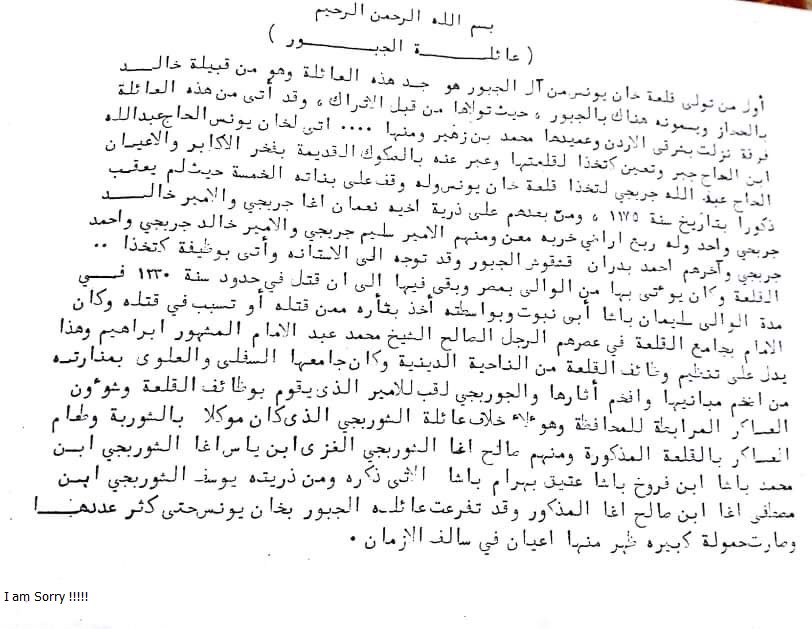 بسم الله الرحمن الرحيم
( عائلــــة الجبـــــور )
أول من تولى قلعة خان يونس من آل الجبور هو جد هذه العائلة وهو من قبيلة خالــد
بالحجاز ويسمونه هناك بالجبور ، حيث تولاها من قبل الاتراك ، وقد أتى من هذه العائلة
فرقة نزلت بشرقى الاردن وعميدها محمد بن زهير ومنها .... اتى لخان يونس الحاج عبدالله
ابن الحاج جبر وتعين كتخذا لقلعتها وعبر عنه بالصكوك القديمة بفخر الأكابر والاعيان
الحاج عبد الله جربجي لتخذا قلعة خان يونس وله وقف على بناته الخمسة حيث لم يعقب
ذكورا بتاريخ سنة ١١٧٥ ، ومن بعدهم على ذرية اخيه نعمان اغا جربجي والامير خالــد
جربجي واحد وله ربع اراضي خربه معن ومنهم الامير سليم جربجي والامير خالد جربجي واحمد
جربجي وآخرهم احمد بدران قنقوش الجبور وقد توجه الى الاستانه وأتى بوظيفة كتخذا ..
القلعة وكان يوءتى بها من الوالى بمصر وبقى فيها الى ان قتل في حدود سنة ١٢٣٠ فـــي
مدة الوالى سليمان باشا أبى نبوت وبواسطته أخذ بثأره ممن قتله أو تسبب في قتله وكان
الامام بجامع القلعة في عصرهم الرجل الصالح الشيخ محمد عبد الامام المشهور ابراهيم وهذا
يدل على تنظيم وظائف القلعة من الناحية الدينية وكان جامعها السفلى والعلوى بمنارتــه
من اضخم مبانيها وافخم أثارها والجوربجي لقب للامير الذى يقوم بوظائف القلعة وشوءون
العساكر المرابطة للمحافظة وهوءلاء خلاف عائلة الشوربجي الذى كان موكلا بالشوربة وطعام
العساكر بالقلعة المذكورة ومنهم صالح اغا الشوربجي الغزى ابن ياس اغا الشوربجي ابـن
محمد باشا ابن فروخ باشا عتيق بهرام باشا الاتى ذكره ومن ذريته يوسف الشوربجي ابـن
مصطفى اغا ابن صالح اغا المذكور وقد تفرعت عائلـة الجبور بخان يونس حتى كثر عددهـــا
وصارت حمولة كبيره ظهر منها اعيان في سالف الازمان .
I am Sorry !!!!!